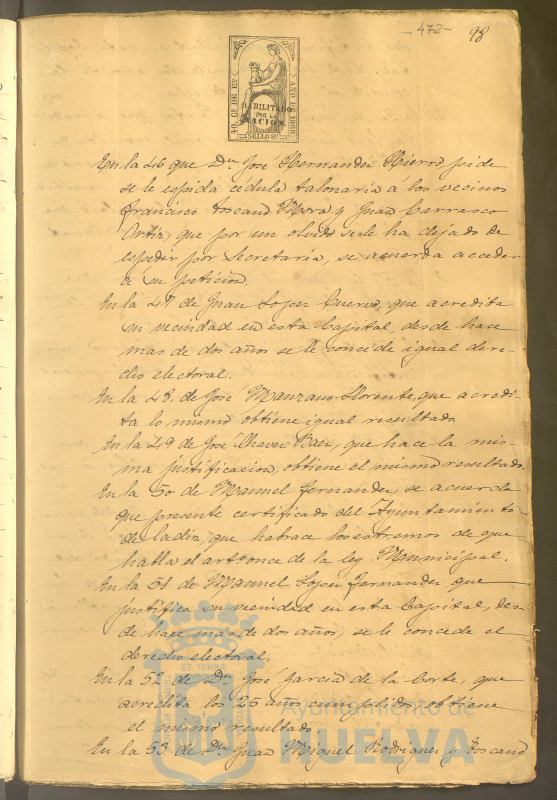 -472-
98
40. Cs. DE Eo.
AÑO DE 1868
HABILITADO
POR LA
NACION
SELLO 9º
En la 46 que Dn José Hernandez Hierro, pide
se le espida cédula talonaria á los vecinos
Francisco Toscano Mora y Juan Carrasco
Ortiz, que por un olvido se le ha dejado de
espedir por Secretaría, se acuerda acceder
á su peticion.
En la 47 de Juan Lopez Cuervo, que acredita
su vecindad en esta Capital, desde hace
mas de dos años se le concede igual dere-
cho electoral.
En la 48. de José Manzano Llorente, que acredi-
ta lo mismo obtiene igual resultado
En la 49 de José Chavez Baez, que hace la mis-
ma justificacion, obtiene el mismo resultado.
En la 50 de Manuel Fernandez, se acuerda
que presente certificado del Ayuntamiento
de que habrace los estremos de que
habla el art. once de la ley Municipal.
En la 51 de Manuel Lopez Fernandez que
justifica su vecindad en esta Capital, des-
de hace mas de dos años, se le concede el
derecho electoral.
En la 52 de Dn José Garcia de la Corte, que
acredita los 25 años cumplidos obtiene
el mismo resultado
En la 53 de Dn Juan Miguel Rodriguez y Toscano
ET TERRAE
Ayuntamiento de
HUELVA